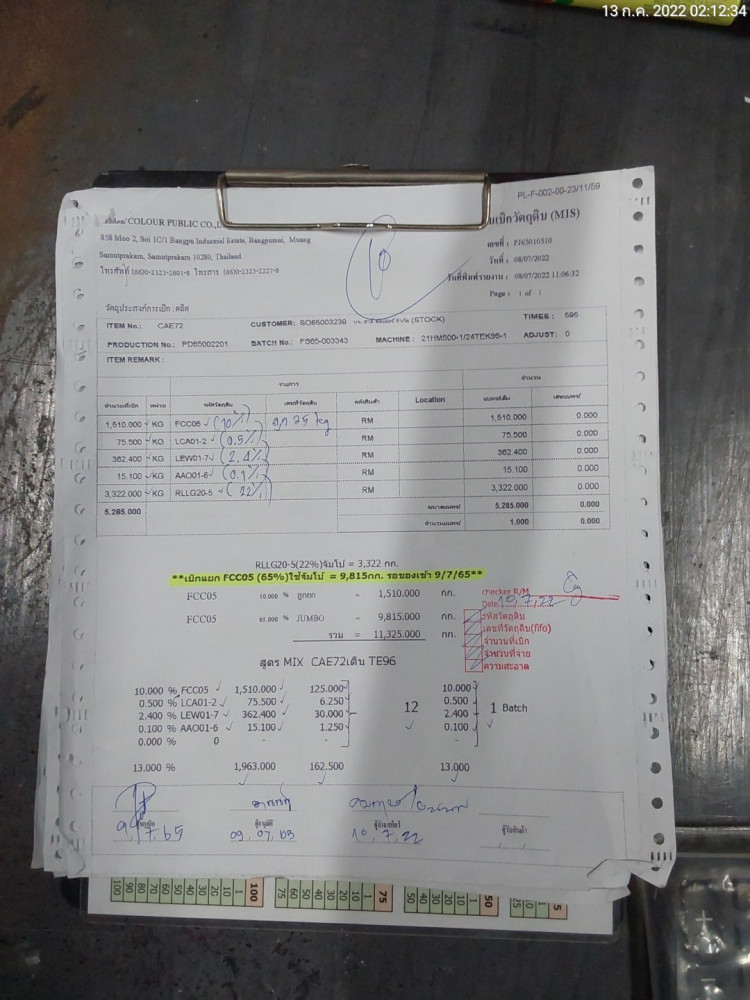 13 ก.ค. 2022 02:12:34
PL-F-002-00-23/11/59
COLOUR PUBLIC CO.,L
บเบิกวัตถุดิบ (MIS)
858 Moo 2, Soi 1C/1 Bangpu Industrial Estate, Bangpumai, Muang
เลขที่ : PJ65010510
Samutprakarn, Samutprakarn 10280, Thailand
วันที่ : 08/07/2022
โทรศัพท์ (66)0-2323-2601-8 โทรสาร (66)0-2323-2227-8
วันที่พิมพ์รายงาน : 08/07/2022 11:06:32
Page : 1 of 1
10
วัตถุประสงค์การเบิก : ผลิต
ITEM No.: CAE72 CUSTOMER: SO65003239 (STOCK) TIMES : 696
PRODUCTION No.: PD65002201 BATCH No.: PS65-003343 MACHINE : 21HM500-1/24TEK96-1 ADJUST: 0
ITEM REMARK :
รายการ จำนวน
จำนวนที่เบิก หน่วย รหัสวัตถุดิบ เลขที่วัตถุดิบ คลังสินค้า Location แบทช์เต็ม เศษแบทช์
1,510.000 KG FCC05 (10%) 25 kg RM 1,510.000 0.000
75.500 KG LCA01-2 (0.5%) RM 75.500 0.000
362.400 KG LEW01-7 (2.4%) RM 362.400 0.000
15.100 KG AAO01-6 (0.1%) RM 15.100 0.000
3,322.000 KG RLLG20-5 (22%) RM 3,322.000 0.000
5,285.000 ขนาดแบทช์ 5,285.000 0.000
จำนวนแบทช์ 1.000 0.000
RLLG20-5(22%)จัมโบ้ = 3,322 กก.
**เบิกแยก FCC05 (65%)ใช้จัมโบ้ = 9,815กก. รอของเข้า 9/7/65**
FCC05 10.000 % ถูกยก = 1,510.000 กก.
FCC05 65.000 % JUMBO = 9,815.000 กก.
รวม = 11,325.000 กก.
checker R/M
Date 10,7,22
รหัสวัตถุดิบ
เลขที่วัตถุดิบ(fifo)
จำนวนที่เบิก
จำนวนที่จ่าย
ความสะอาด
สูตร MIX CAE72เดิน TE96
10.000 % FCC05 1,510.000 125.000 10.000
0.500 % LCA01-2 75.500 6.250 0.500
2.400 % LEW01-7 362.400 30.000 12 2.400 1 Batch
0.100 % AAO01-6 15.100 1.250 0.100
0.000 % 0 - - -
13.000 % 1,963.000 162.500 13.000
ผู้อนุมัติ
ผู้รับสินค้า
9/7/65 09,07,65 10,7,22
100 90 80 70 60 50 40 30 20 10 1 100 75 50 40 30 20 10 1 75 50 40 30 20 10 1 50 25 20 10 1 5